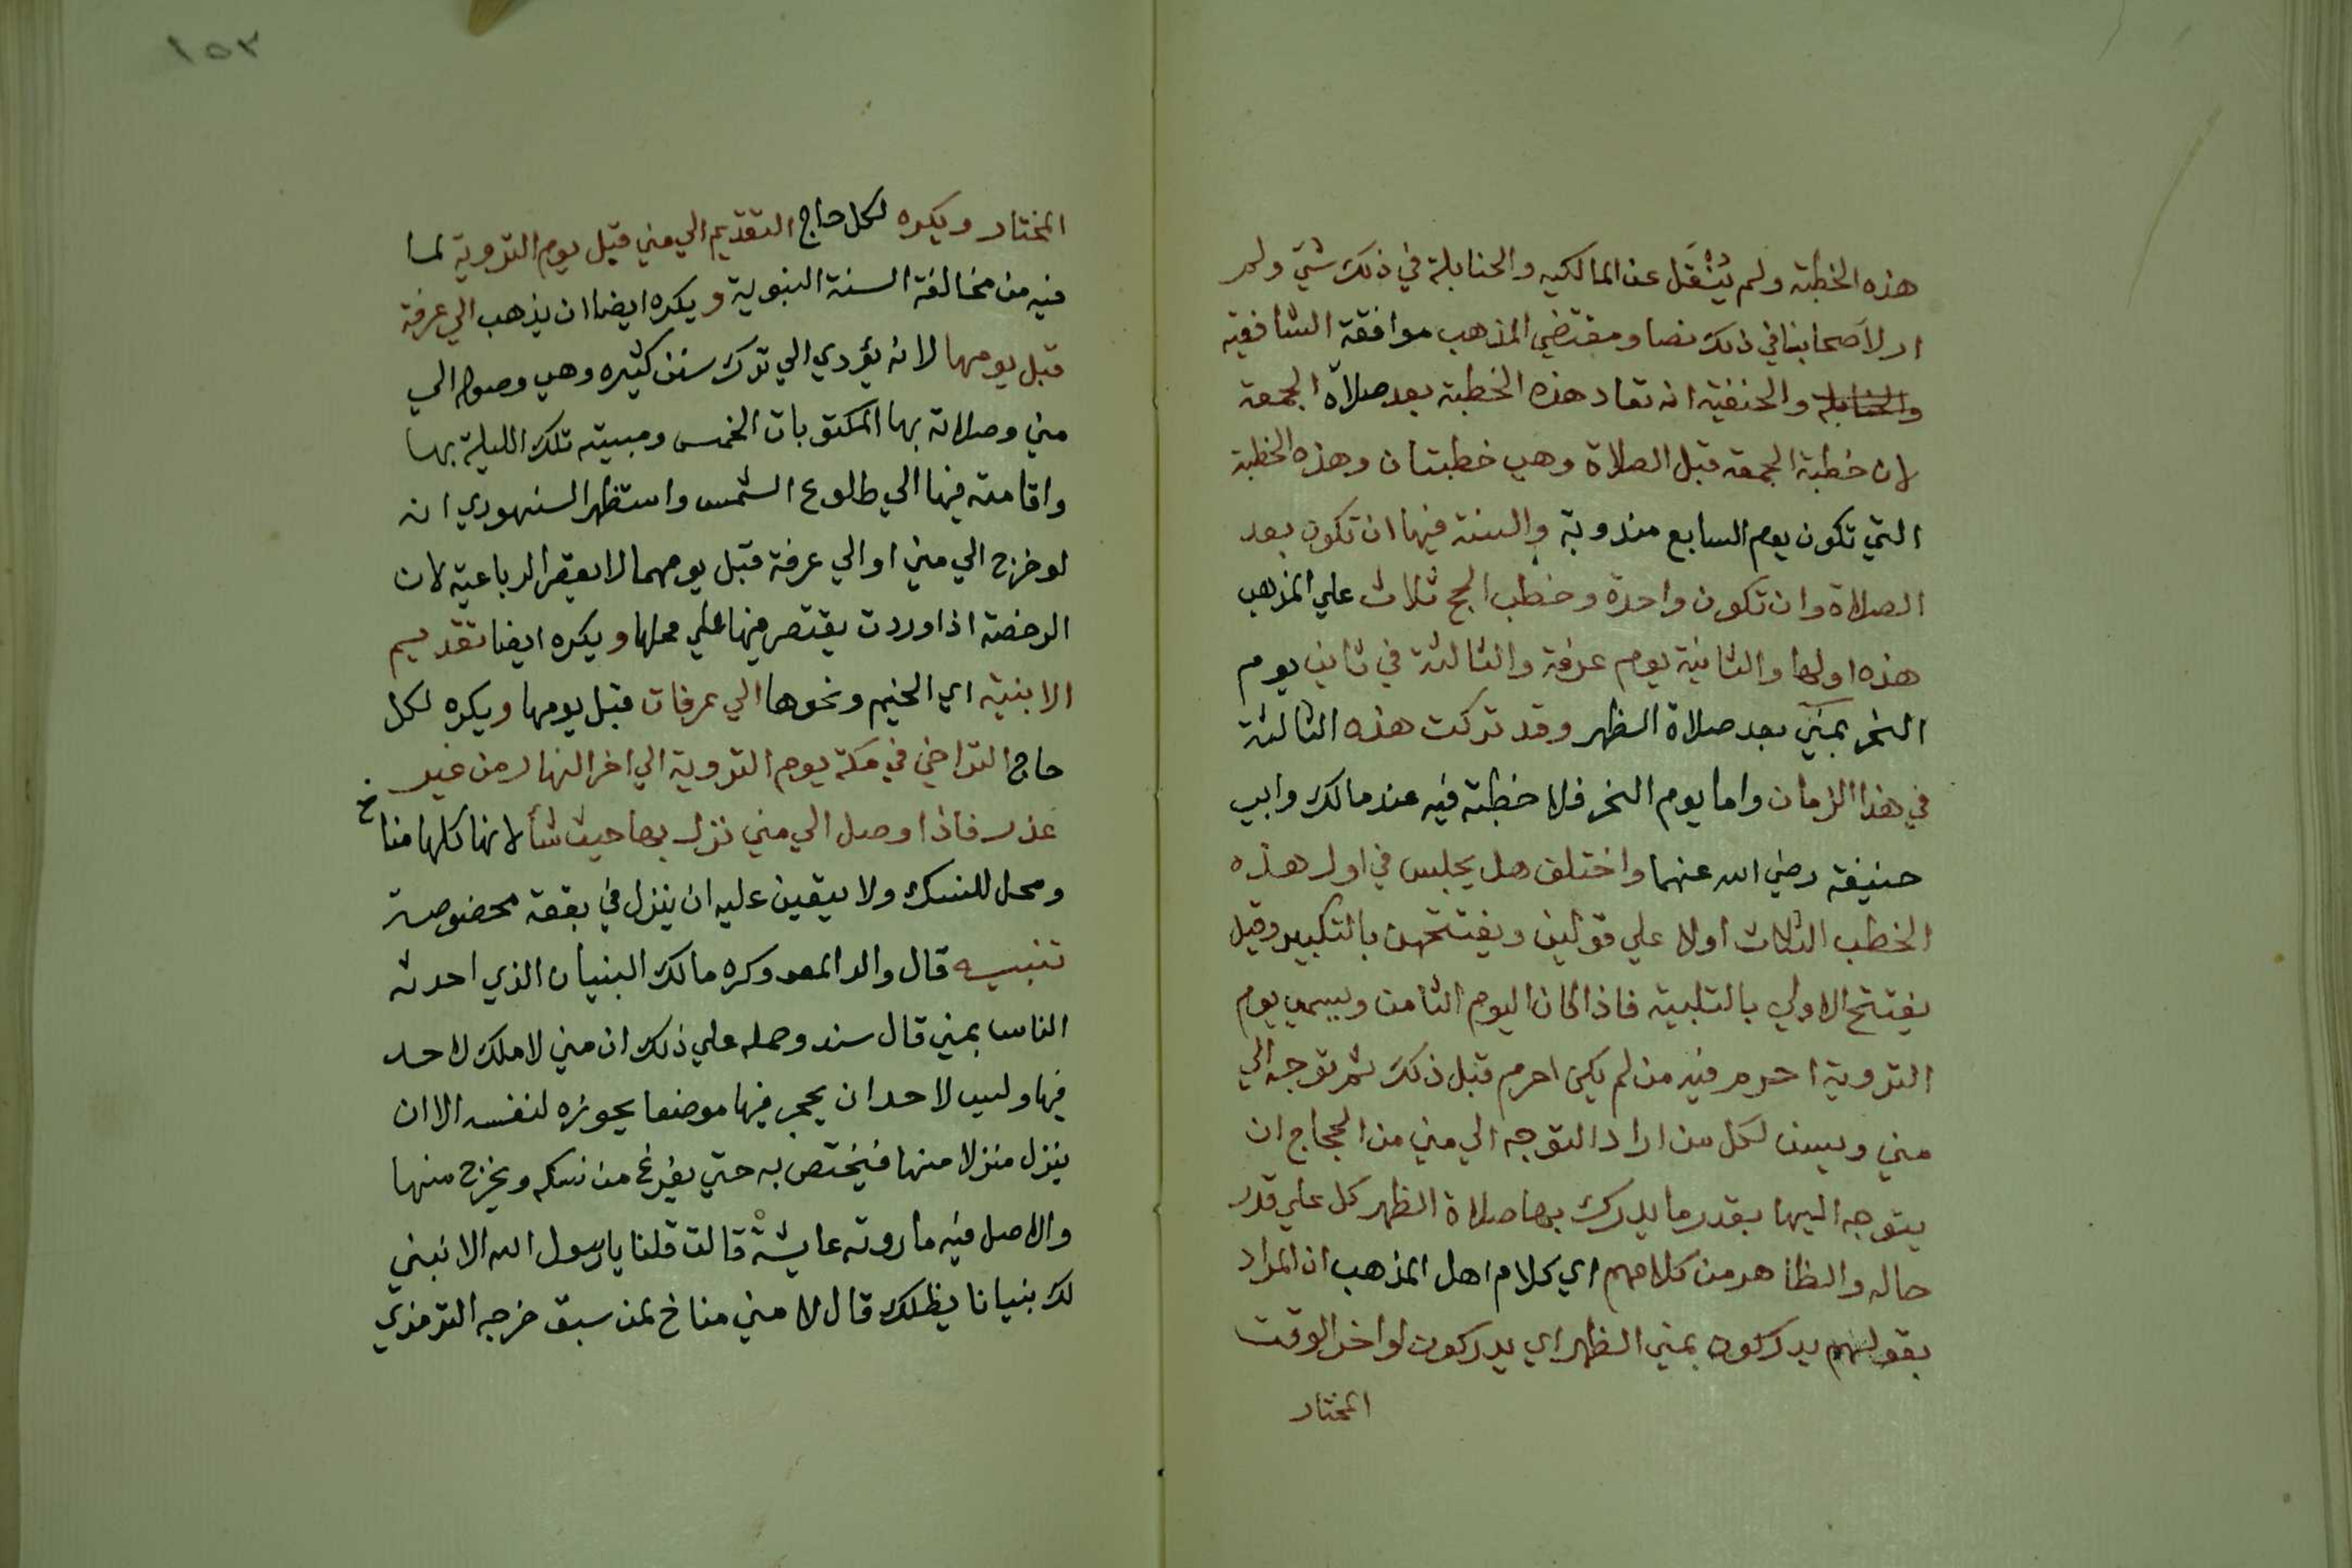 هذه الخطبة ولم يُنْقَل عن المالكيه والحنابلة في ذلك شيَ ولم
ار لاَصحابنا في ذلك نصا ومقتضي المذهب موافقة الشافعية
والحنابلة والحنفية انه تعاد هذه الخطبة بعد صلاة الجمعة
لان خطبة الجمعه قبل الصلاة وهي خطبتان وهذه الخطبة
التي تكون يوم السابع مندوبة والسنة فيها ان تكون بعد
الصلاة وان تكون واحدة وخطب الحج ثلاث علي المذهب
هذه اولها والثانية يوم عرفة والثالثة في ثاني يوم
النحر بمنيَ بعد صلاة الظهر وقد تركت هذه الثالثة
في هذا الزمان واما يوم النحر فلا خطبة فيه عند مالك وابي
حنيفة رضي الله عنهما واختلف هل يجلس في اول هذه
الخطب الثلاث اولا علي قولين ويفتتحهن بالتكبير وقيل
يفتتح الاولي بالتلبية فاذا كان اليوم الثامن ويسمي يوم
التروية احرم فيه من لم يكن احرم قبل ذلك ثم توجه الي
مني ويسن لكل من اراد التوجه الي مني من الحجاج ان
يتوجه اليها بقدر ما يدرك بها صلاة الظهر كل علي قدر
حاله والظاهر من كلامهم اي كلام اهل المذهب ان المراد
بقولهم يدركون بمني الظهر اي يدركون لواخر الوقت
المختار
١٥٣
المختار ويكره لكل حاج التقديم الي مني قبل يوم التروية لما
فيه من مخالفة السنة النبوية ويكره ايضا ان يذهب الي عرفة
قبل يومها لانه يؤدي الي ترك سنن كثيره وهي وصوله الي
مني وصلاته بها المكتوبات الخمس ومبيته تلك الليلة بها
واقامته فيها الي طلوع الشمس واستظهر السنهوري انه
لو خرج الي مني او الي عرفة قبل يومهما لا يقصر الرباعية لان
الرخصة اذا وردت يقتصر فيها علي محلها ويكره ايضا تقديم
الابنية اي الخيم ونحوها الي عرفات قبل يومها ويكره لكل
حاج التراخي في مكة يوم التروية الي اخر النهار من غير
عذر فاذا وصل الي مني نزل بها حيث شأ لانها كلها مناخ
ومحل للنسك ولا يتعين عليه ان ينزل في بقعة مخصوصة
تنبيه قال والد المص وكره مالك البنيان الذي احدثه
الناس بمني قال سند وحمله علي ذلك ان مني لا ملك لاحد
فيها وليس لاحد ان يحجر فيها موضعا يحوزه لنفسه الا ان
ينزل منزلا منها فيختص به حتي يفرغ من نسكه ويخرج منها
والاصل فيه ما روته عايشة قالت قلنا يا رسول الله الا نبني
لك بنيانا يظلك قال لا مني مناخ لمن سبق خرجه الترمذي